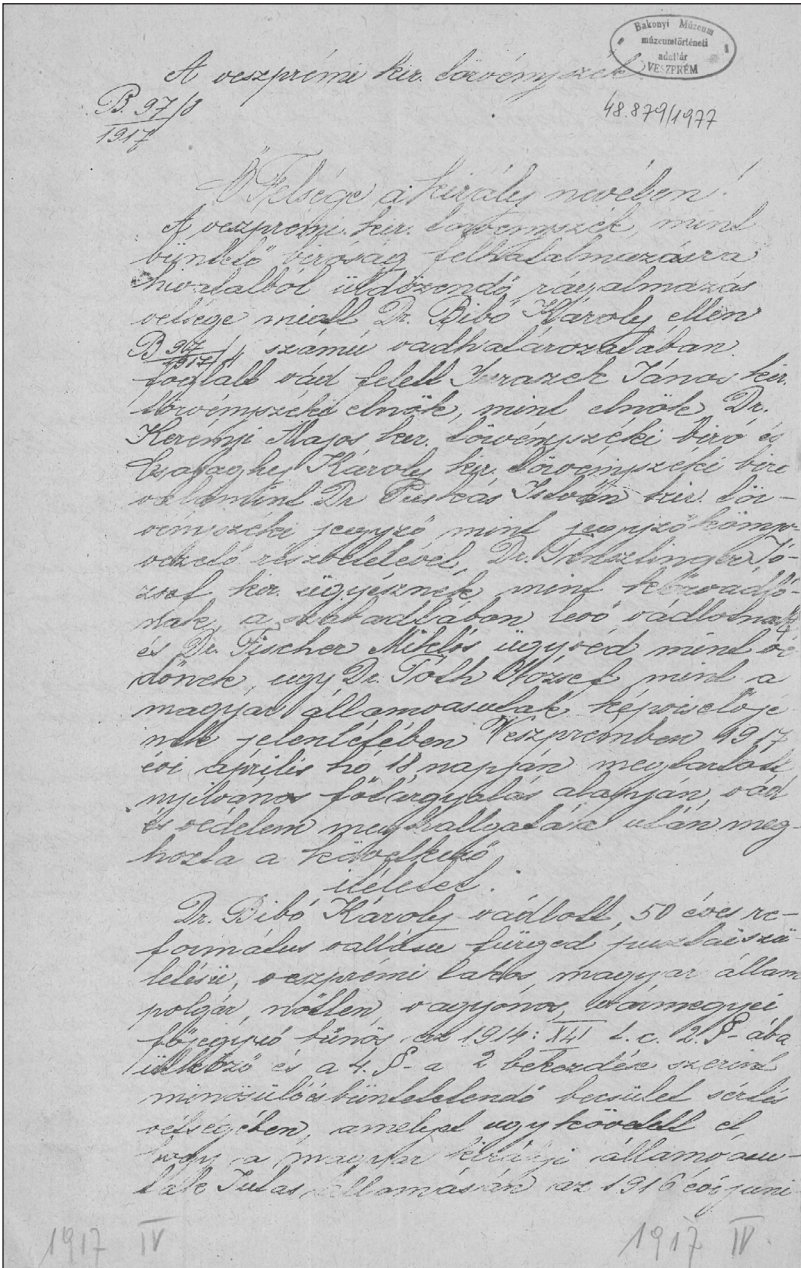 Bakonyi Múzeum
múzeumtörténeti
adattár
VESZPRÉM
A veszprémi kir. törvényszék
B. 97/8
1917
48.879/1977
Ő Felsége a király nevében!
A veszprémi kir. törvényszék mint
büntető biróság felhatalmazásra
hivatalból üldözendő rágalmazás
vétsége miatt Dr. Bibó Károly ellen
B 97/1917/ számu vádhatározatában
foglalt vád felett János kir.
törvényszéki elnök, mint elnök, Dr.
Kerényi Lajos kir. törvényszéki biró és
Károly kir. törvényszéki biró
valamint Dr Puskás István kir. tör-
vényszéki jegyző mint jegyzőkönyv-
vezető részvételével, Dr. Jó-
zsef kir. ügyésznek mint közvádló-
nak, a szabadlábon levő vádlottnak
és Dr. Fischer Miklós ügyvéd mint vé
dőnek, ugy Dr. Tóth József mint a
magyar államvasutak képviselőjé
nek jelenlétében Veszprémben 1917
évi április hó 18 napján megtartott
nyilvános főtárgyalás alapján vád
és védelem meghallgatása után meg-
hozta a következő
itéletet.
Dr. Bibó Károly vádlott, 50 éves re-
formátus vallásu fürged pusztai szü-
letésü, veszprémi lakos, magyar állam
polgár, nőtlen, vagyonos, vármegyei
főjegyző bünös az 1914: XLI t. c. 2. §-ába
ütköző és a 4. §-a 2 bekezdése szerint
minősülő és büntetendő becsület sértés
vétségében, amelyet ugy követett el
hogy a magyar királyi államvasu-
tak Jutas állomásán az 1916 évi juni-
1917 IV
1917 IV.